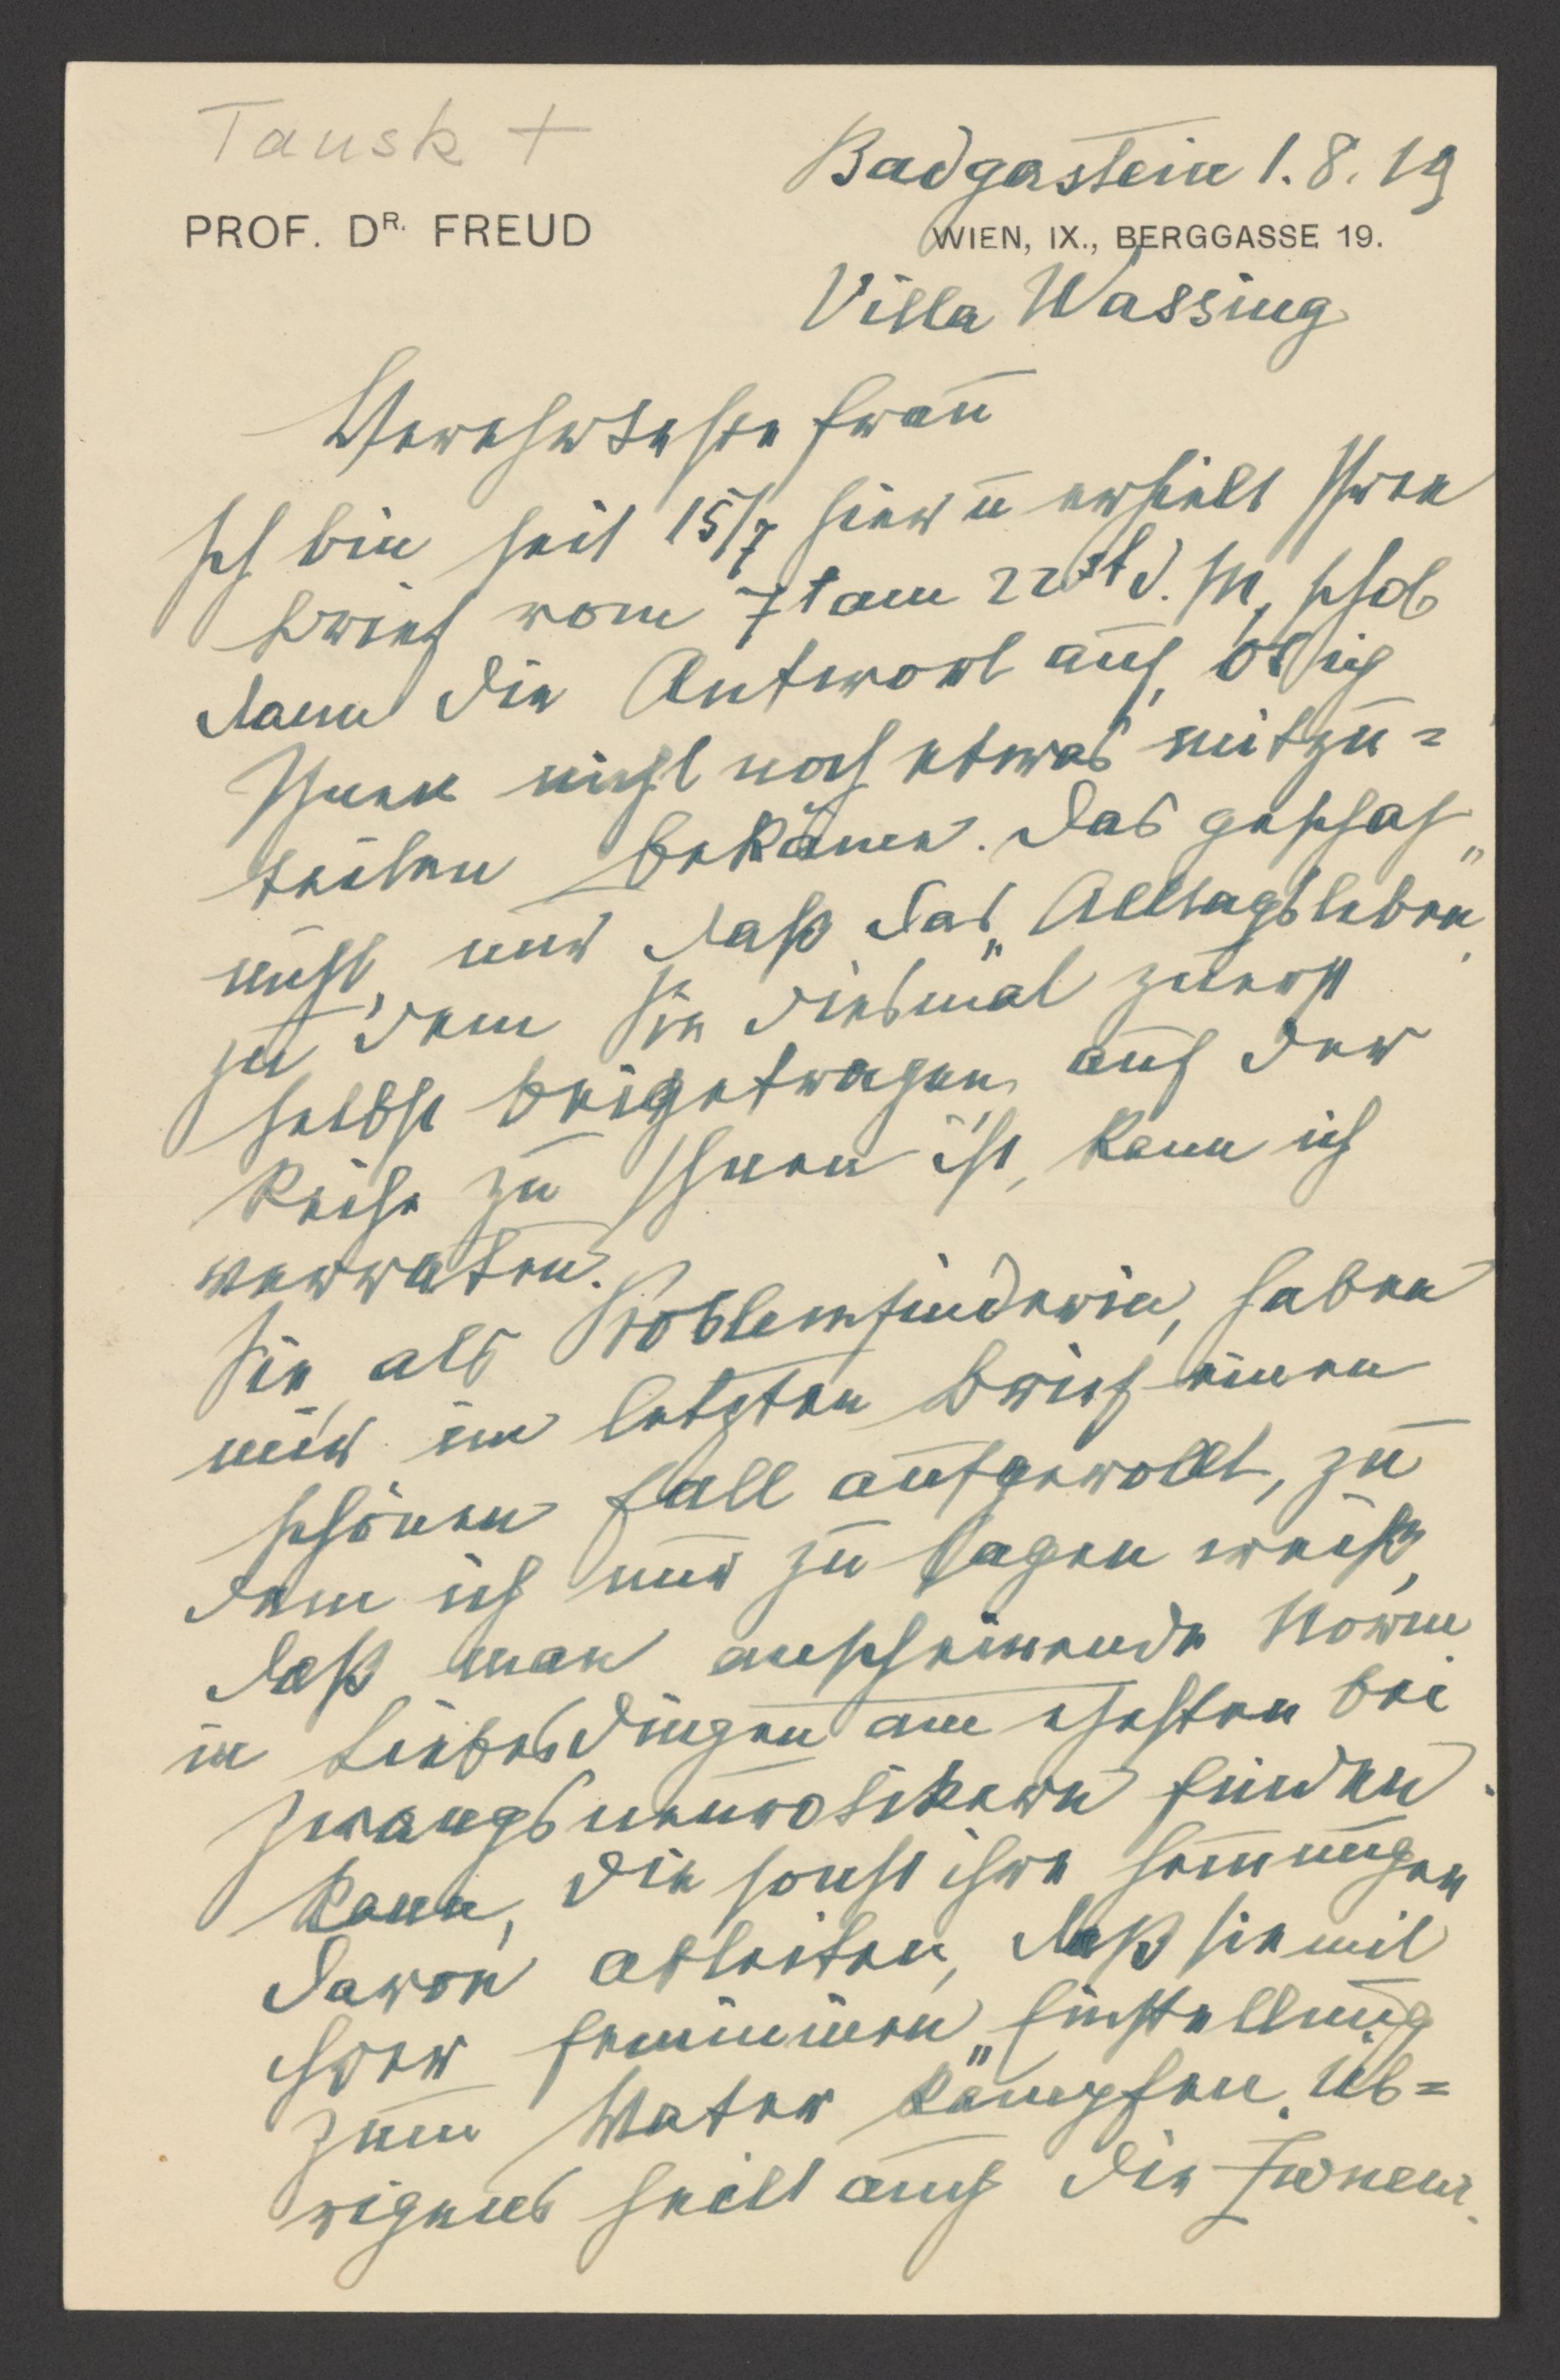 Tausk +
Badgastein 1.8.19
PROF. DR. FREUD
WIEN, IX., BERGGASSE 19.
Villa Wassing
Verehrteste Frau
Ich bin seit 15/7 hier u erhielt Ihren
Brief vom 7t am 22st d. M., schob
dann die Antwort auf, ob ich
Ihnen nicht noch etwas mitzu=
teilen bekäme. Das geschah
nicht, nur daß das „Alltagsleben“,
zu dem Sie diesmal zuerst
selbst beigetragen, auf der
Reise zu Ihnen ist, kann ich
verraten.
Sie, als Problemfinderin, haben
mir im letzten Brief einen
schönen Fall aufgerollt, zu
dem ich nur zu sagen weiß,
daß man anscheinende Norm
in Liebesdingen am ehesten bei
Zwangsneurotikern finden
kann, die sonst ihre Hem̅ungen
davon ableiten, daß sie mit
ihrer femininen Einstellung
zum Vater kämpfen. Üb=
rigens heilt auch die Zwneur.